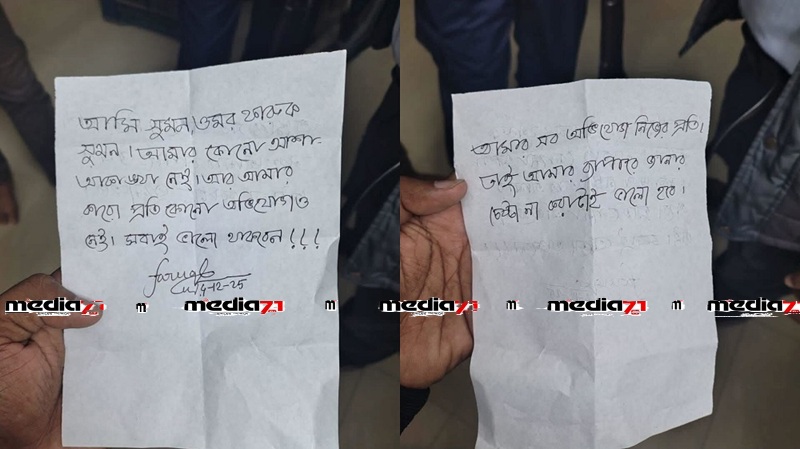 আমি সুমন, ওমর ফারুক
সুমন। আমার কোনো আশা-
আকাঙ্খা নেই। আর আমার
কারো প্রতি কোনো অভিযোগও
নেই। সবাই ভালো থাকবেন!!!
14-12-25
আমার সব অভিযোগ নিজের প্রতি।
তাই আমার ব্যাপারে জানার
চেষ্টা না করাটাই ভালো হবে।
media71 m media71 m media71 m media71